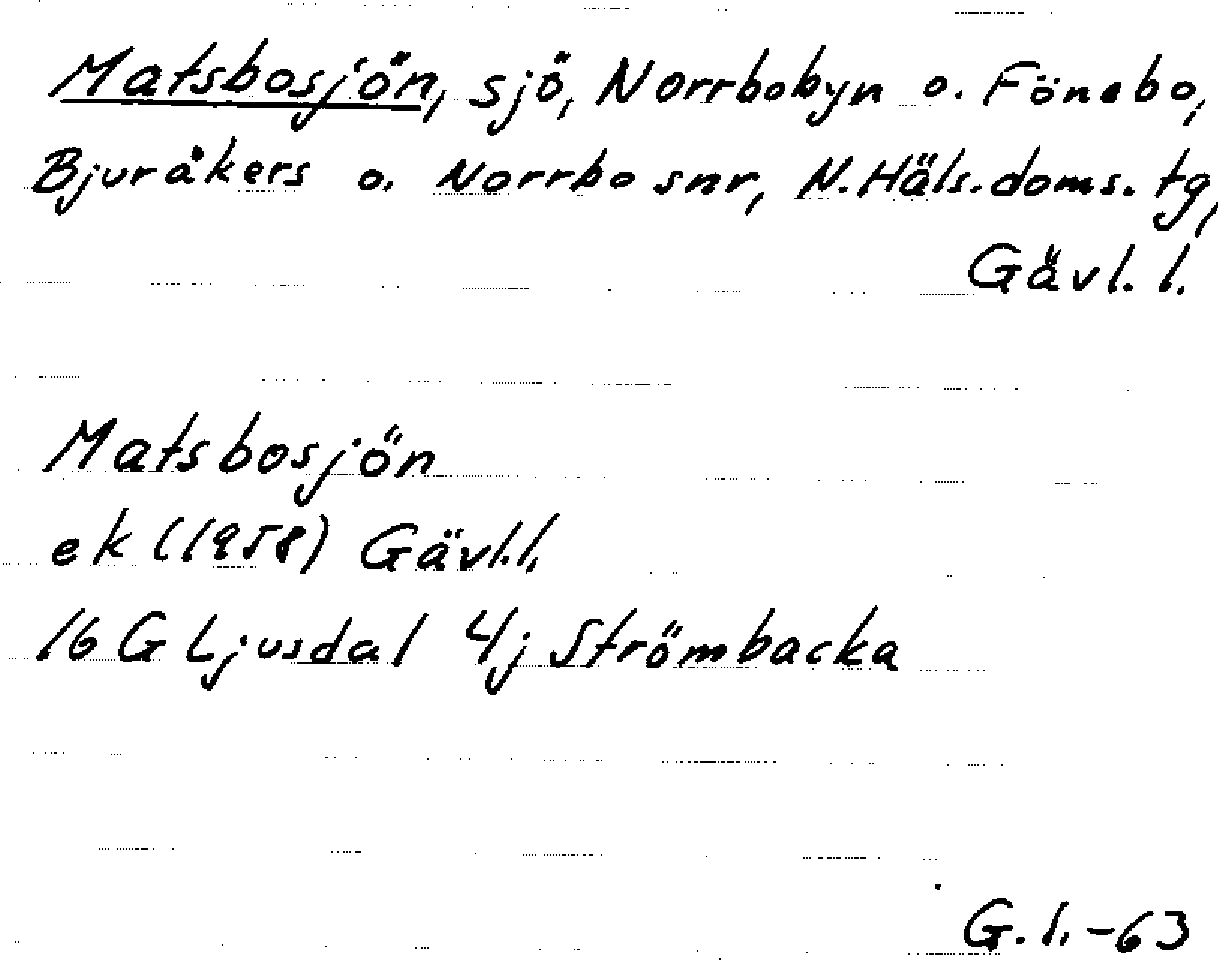 Matsbosjön, sjö, Norrbobyn o. Fönebo,
Bjuråkers o. Norrbo snr, N.Häls.doms.tg,
Gävl.l.
Matsbosjön
ek (1958) Gävl.l.
16 G Ljusdal 4j Strömbacka
G.l.-63